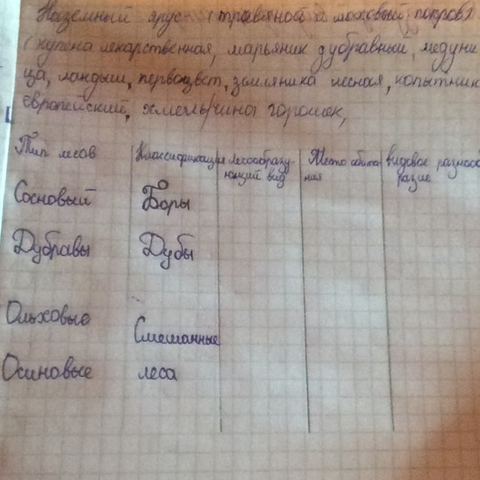 Наземный ярус (травяной и моховый покров)
(купена лекарственная, марьяник дубравный, медуни
ца, ландыш, первоцвет, земляника лесная, копытник
европейский, хмель, чина горошек,
Тип лесов Классификация лесообразу-ющий вид Место обита-ния видовое разнооб-разие
Сосновый Боры
Дубравы Дубы
Ольховые
Смешанные
Осиновые леса